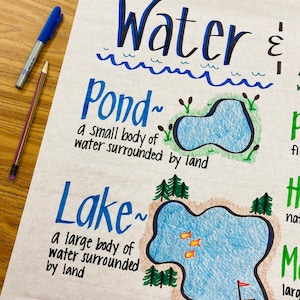 Water &
Pond~
a small body of
water surrounded by land
Lake~
a large body of
water surrounded
by land